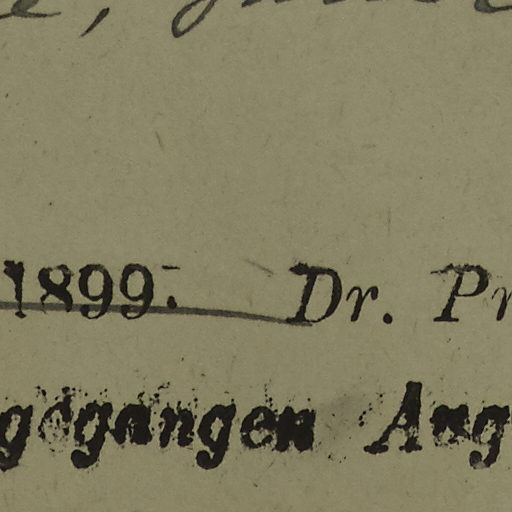 1899. Dr. Pr
gegangen Aug